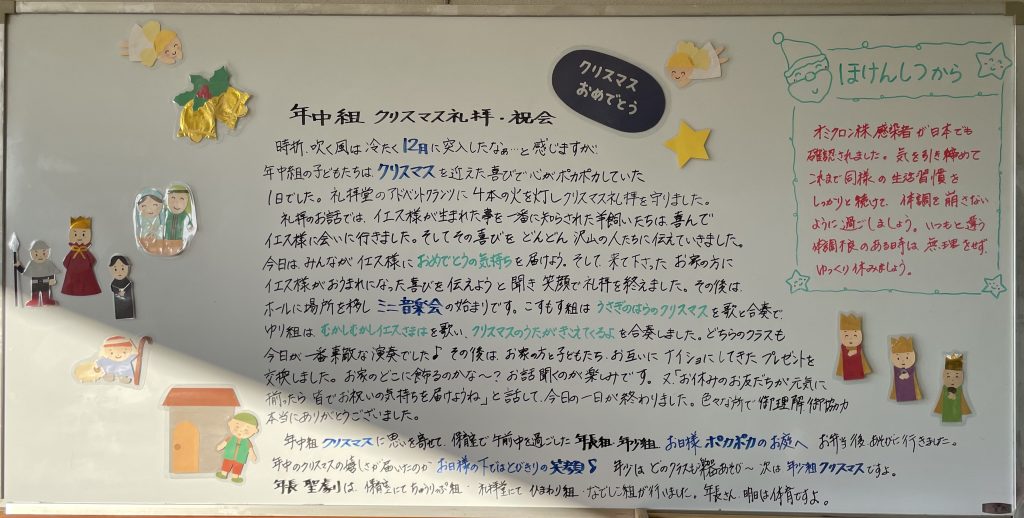 クリスマス
おめでとう
年中組 クリスマス礼拝・祝会
時折、吹く風は冷たく12月に突入したなぁ…と感じますが、
年中組の子どもたちは、クリスマスを迎えた喜びで心がポカポカしていた
1日でした。礼拝堂のアドベントクランツに4本の火を灯しクリスマス礼拝を守りました。
礼拝のお話では、イエス様が生まれた事を一番に知らされた羊飼いたちは喜んで
イエス様に会いに行きました。そしてその喜びをどんどん沢山の人たちに伝えていきました。
今日は、みんながイエス様におめでとうの気持ちを届けよう。そして来て下さったお家の方に
イエス様がお生まれになった喜びを伝えようと聞き笑顔で礼拝を終えました。その後は、
ホールに場所を移しミニ音楽会の始まりです。こすもす組はうさぎのはらのクリスマスを歌と合奏で、
ゆり組はむかしむかしイエスさまはを歌い、クリスマスのうたがきこえてくるよを合奏しました。どちらのクラスも
今日が一番素敵な演奏でした♪その後は、お家の方と子どもたち、お互いにナイショにしてきたプレゼントを
交換しました。お家のどこに飾るのかな～?お話聞くのが楽しみです。又「お休みのお友だちが元気に
揃ったら皆でお祝いの気持ちを届けようね」と話して、今日の一日が終わりました。色々な所で御理解御協力
本当にありがとうございました。
年中組クリスマスに思いを寄せて、保育室で午前中を過ごした年長組・年少組、お日様ポカポカのお庭へ お弁当後あそびに行きました。
年中のクリスマスの嬉しさが届いたのか お日様の下ではとびきりの笑顔 年少はどのクラスも楽器あそび～次は年少組クリスマスですよ。
年長 聖劇りは、保育室にてちゅうりっぷ組・礼拝堂にてひまわり組・なでしこ組が行いました。年長さん、明日は体育ですよ。
ほけんしつから
オミクロン株感染者が日本でも
確認されました。気を引き締めて
これまで同様の生活習慣を
しっかりと続けて、体調を崩さない
ように過ごしましょう。いつもと違う
体調不良のある時は無理をせず、
ゆっくり休みましょう。